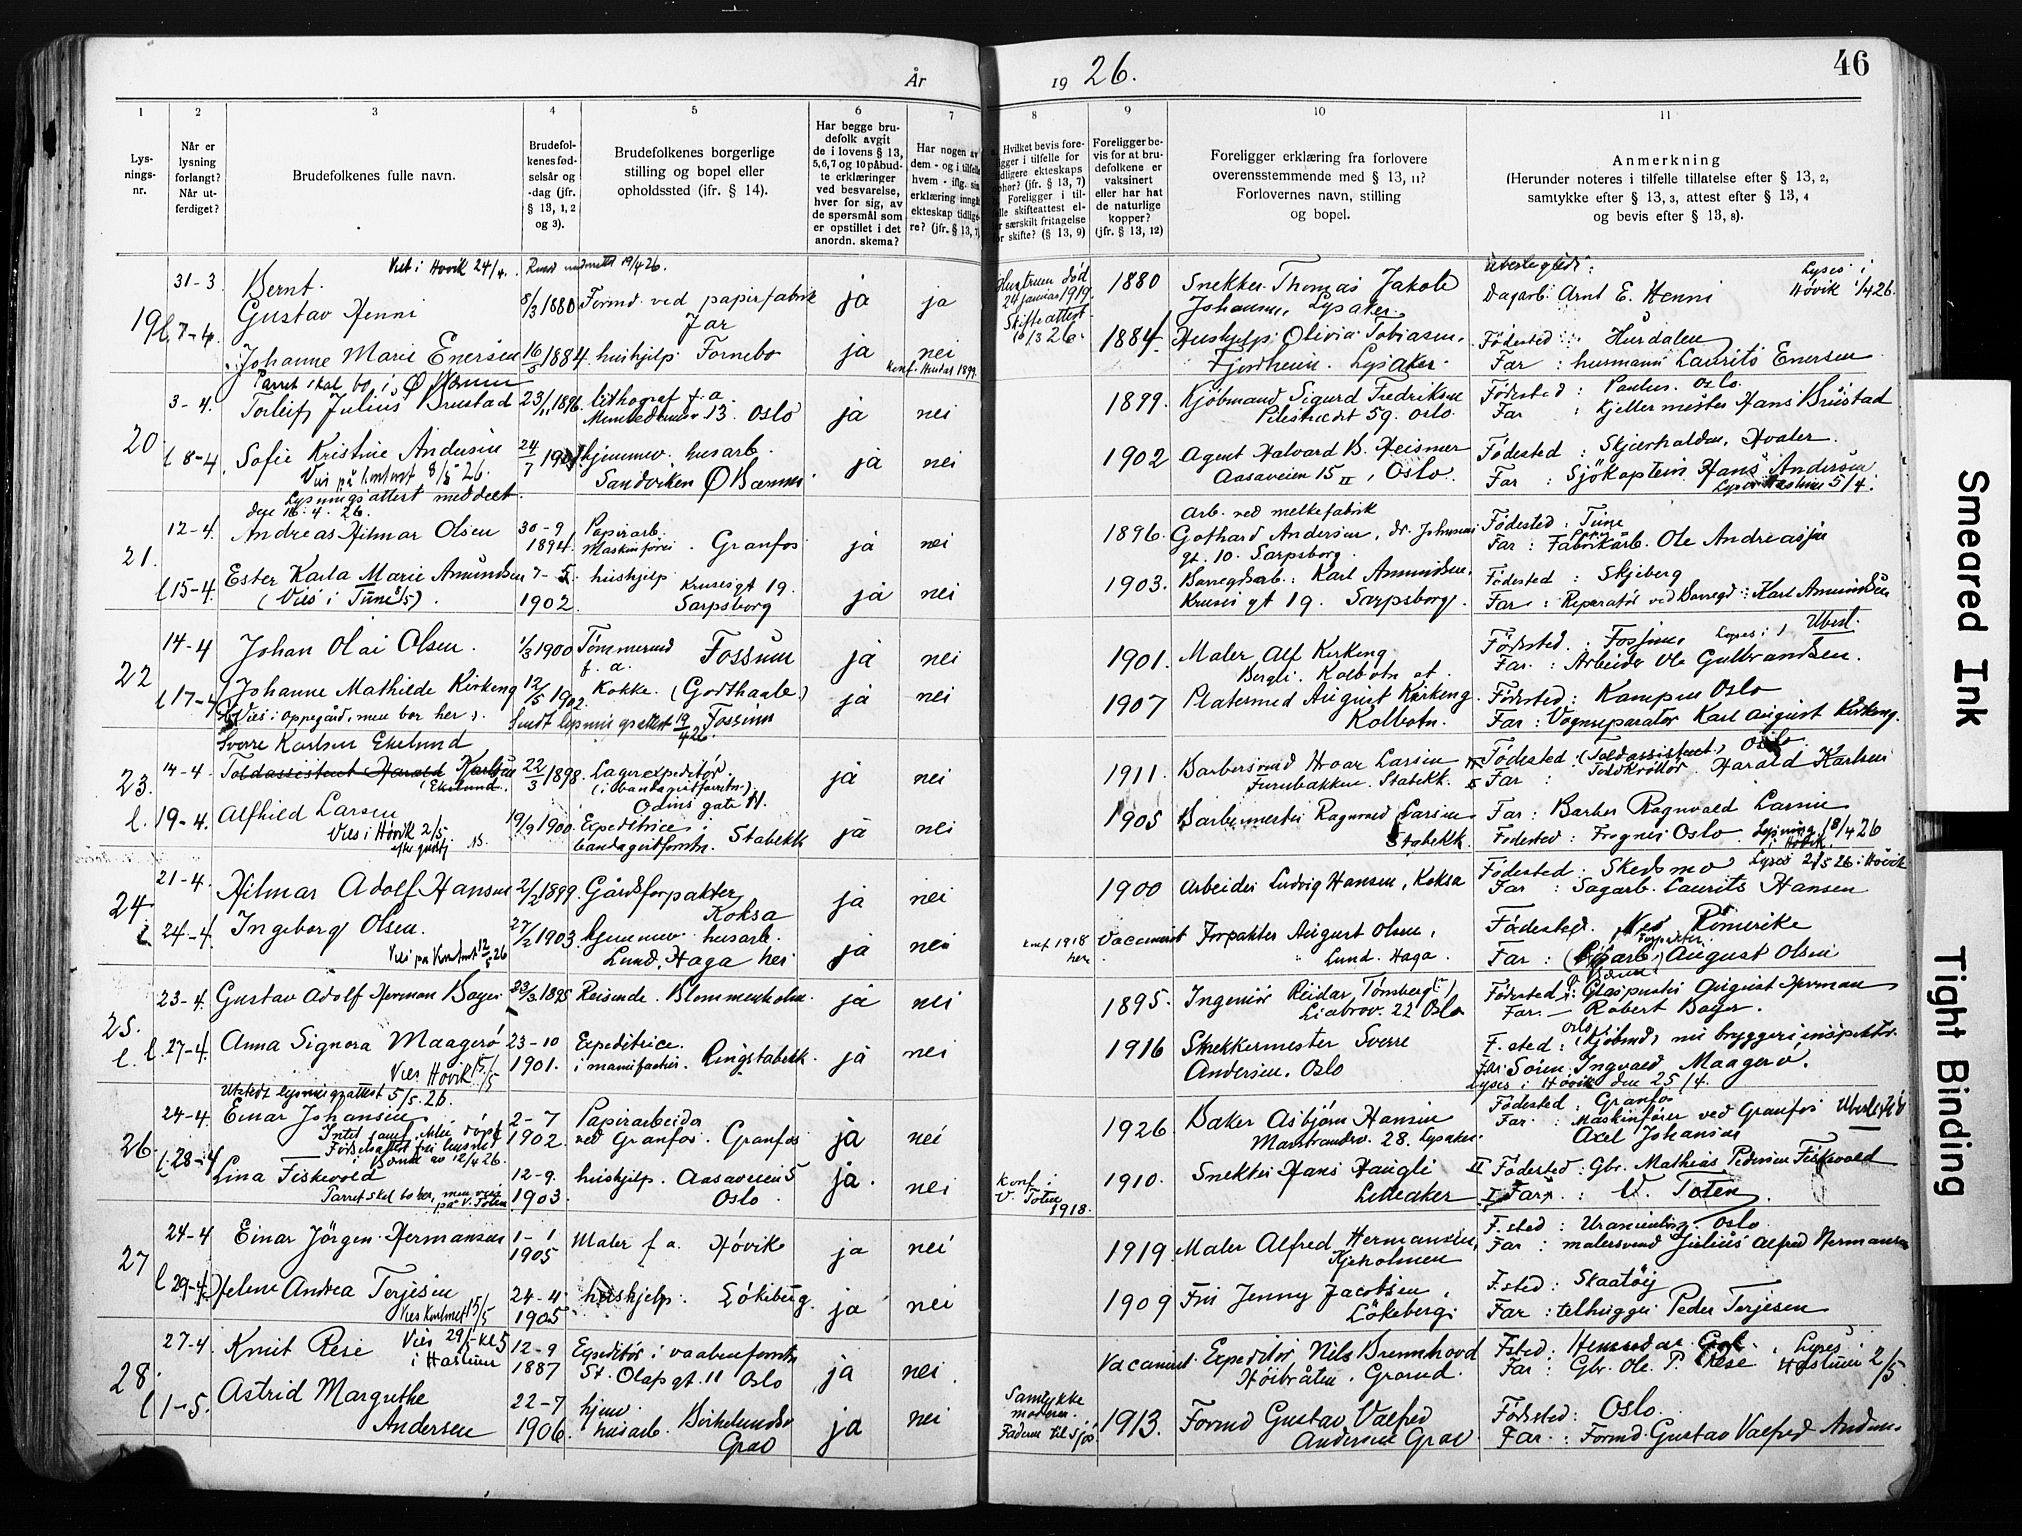 År 19 26.
46
1
2
3
4
5
6
7
8
9
10
11
Lys-
nings-
nr.
Når er
lysning
forlangt?
Når ut-
ferdiget?
Brudefolkenes fulle navn.
Brudefol-
kenes fød-
selsår og
-dag (jfr.
§ 13, 1, 2
og 3).
Brudefolkenes borgerlige
stilling og bopel eller
opholdssted (jfr. § 14).
Har begge bru-
defolk avgit
de i lovens § 13,
5, 6, 7 og 10 påbud-
te erklæringer
ved besvarelse,
hver for sig, av
de spørsmål som
er opstillet i det
anordn. skema?
Har nogen av
dem - og i tilfelle
hvem - iflg. sin
erklæring inngått
ekteskap tidlige-
re? (jfr. § 13, 7)
Hvilket bevis fore-
ligger i tilfelle for
tidligere ekteskaps
ophør? (jfr. § 13, 7)
Foreligger i til-
felle skifteattest el-
ler særskilt fritagelse
for skifte? (§ 13, 9)
Foreligger be-
vis for at bru-
defolkene er
vaksinert
eller har hat
de naturlige
kopper?
(jfr. § 13, 12)
Foreligger erklæring fra forlovere
overensstemmende med § 13, 11?
Forlovernes navn, stilling
og bopel.
Anmerkning
(Herunder noteres i tilfelle tillatelse efter § 13, 2,
samtykke efter § 13, 3, attest efter § 13, 4
og bevis efter § 13, 8).
19
31-3
7-4
Viet i Høvik 24/4.
Bernt
Gustav Henni
8/3 1880 Formd. ved papirfabrik
Jar
ja
ja
Hustruen død
24 januar 1919.
Skifteattest
16/3 26.
1880
Snekker Thomas Jakob
Johansen, Lysaker
Dagarb. Arnt E. Henni
Lyses i
Høvik 11/4 26.
Johanne Marie Enersen
16/5 1884. hushjelp. Fornebo
ja
nei
konf. Hurdal 1899.
1884
Hushjelp. Olivia Tobiasen,
Fjordheim. Lysaker.
Fødested: Hurdalen
Far : husmann Laurits Enersen
Parret skal bo i Ø Bærum
20
3-4.
8-4.
Torleif Julius Brustad
23/11 1896. lithograf f.a.
Munkedamsv 13. Oslo
ja
nei
1899.
Kjøbmand Sigurd Fredriksen
Pilestredet 59. Oslo.
Fødested : Paulus. Oslo.
Far : Kjellermester Hans Brustad
Sofie Kristine Andersen
Vies på kontoret 8/5 26.
24/7 1901. hjemmev. husarb.
Sandviken Ø Bærum
ja
nei
1902
Agent Halvard B. Heismer
Aasaveien 15 II, Oslo.
Fødested : Skjærhalden, Hvaler.
Far : Sjökaptein Hans Andersen
Lyses Haslum 5/4.
Lysningsattest meddelt
den 16. 4. 26.
21.
12-4.
15-4.
Andreas Hilmar Olsen
30-9
1894.
Papirarb.
Maskinfører. Granfos
ja
nei
1896.
Arb. ved melkefabrik
Gothard Andersen, dr. Johnsens
gt. 10. Sarpsborg.
Fødested : Tune
Far : Fabrikarb. Ole Andreassen
Ester Karla Marie Amundsen
(Vies i Tune 8/5).
7-5
1902
hushjelp
Krusesgt 19.
Sarpsborg
ja
nei
1903.
Borregdsarb: Karl Amundsen,
Kruses gt 19. Sarpsborg.
Fødested : Skjeberg
Far : Reparatør ved Borregd: Karl Amundsen
22
14-4
17-4
Johan Olai Olsen.
1/3 1900 Tømmermd
f. a.
Fossum
ja
nei
1901.
Maler Alf Kirkeng
Bergli. Kolbotn st.
Fødested : Fossum Lyses i Uberl.
Far. : Arbeider Ole Gulbrandsen.
Johanne Mathilde Kirkeng
Vies i Oppegård, men bor her.
12/5 1902.
Kokke. (Godthaab)
Fossum
Sendt lysningsattest 19/4 26.
ja
nei
1907
Platearb August Kirkeng.
Kolbotn.
Fødested : Kampen Oslo
Far : Vognreparatør Karl August Kirkeng.
23.
14-4.
19-4.
Sverre Karlsen Ekelund
Toldassistent Harald Karlsen
(Ekelund.
22/3 1898. Lagerexpeditör
(i bandagistforretn.)
Odins gate 11.
ja
nei
1911.
Barbersvend Hroar Larsen
Furubakken. Stabekk.
Fødested : (Toldassistent, Oslo
Far : Harald Karlsen
Alfhild Larsen
Vies i Høvik 2/5.
19/9 1900. Expeditrice i
bandagistforretn. Stabekk
ja
nei
1905
Barbermester Ragnvald Larsen
Stabekk.
Far : Barber Ragnvald Larsen
Fødested : Frogner Oslo. Lysning 18/4 26
i Høvik.
24
21-4.
24-4.
Hilmar Adolf Hansen
2/2 1899. Gårdsforpakter
Koksa
ja
nei
1900
Arbeider Ludvig Hansen, Koksa
Fødested : Skedsmo Lyses 2/5 26 i Høvik
Far : Sagarb. Laurits Hansen
Ingeborg Olsen.
Vies på Kontoret 12/5 26
27/2 1903 hjemmev. husarb.
Lund, Haga her
ja
nei
konf 1918
her
Vaccinert
Forpakter August Olsen,
Lund. Haga.
Fødested. Nes Romerike
Far : August Olsen
25.
23-4.
27-4.
Gustav Adolf Herman Bayer
23/3 1895 Reisende. Blommenholm.
ja
nei
1895.
Ingeniör Reidar Tønsberg
Liabrov. 22 Oslo
Fødested : Glaspuster August Herman
Far: — Robert Bayer.
Anna Signora Maagerø
Vies Høvik 15/5
23-10
1901.
Expeditrice.
i manufactur. Ringstabekk.
ja
nei
1916
Snekkermester Sverre
Andersen. Oslo
F. sted : Oslo (Kjøbmd, nu bryggeriinspektør
Far: Sören Ingvald Maagerø.
Lyses i Høvik den 25/4.
Utstedt lysningsattest 5/5. 26.
26.
24-4.
28-4
Einar Johansen
2-7
1902
Papirarbeider
ved Granfos. Granfos
ja
nei
1926
Baker Asbjørn Hansen
Marstrandsv. 28. Lysaker.
Fødested : Granfos
Far. : Maskinfører ved Granfos
Axel Johansen
Lina Fiskevold
Parret skal bo her, men vies
på V. Toten
12-9.
1903
hushjelp. Aasaveien 5
Oslo
ja.
nei
konf. i
V. Toten
1918.
1910.
Snekker Hans Haugli
Lilleaker
Fødested : Gbr. Mathias Pedersen Fiskevold
Far. : V. Toten
27
24-4
29-4.
Einar Jörgen Hermansen
1-1
1905
Maler f a. Høvik
ja
nei
1919
Maler Alfred Hermansen,
Kjeholmen
F. sted : Uranienborg. Oslo
Far : malersvend Julius Alfred Hermansen
Helene Andrea Terjesen
Vies kontoret 15/5
24-4
1905
hushjelp. Lökeberg.
ja
nei
1909
Fru Jenny Jacobsen,
Lökeberg.
F. sted : Skaatöy
Far : telhugger Peder Terjesen
28.
27-4
1-5.
Knut Rese
Vies 29/5 kl 5
i Haslum
12-9
1887
Expeditör i vaabenforretn
St. Olafs gt. 11 Oslo
ja
nei.
Vaccinert.
Expeditör Nils Brennhovd
Höibråten, Grorud.
Fsted : Hemsedal. Lyses
Far : Gbr. Ole P. Rese Haslum 2/5
Astrid Margrethe
Andersen
22-7
1906.
hjem.
husarb. Birkelundsv
Grav
ja
nei
Samtykke
moderen.
Faderen til sjøs
1913.
Formd Gustav Valfred
Andersen Grav
Fødested : Oslo.
Far. : Formd. Gustav Valfred Andersen
Smeared Ink
Tight Binding